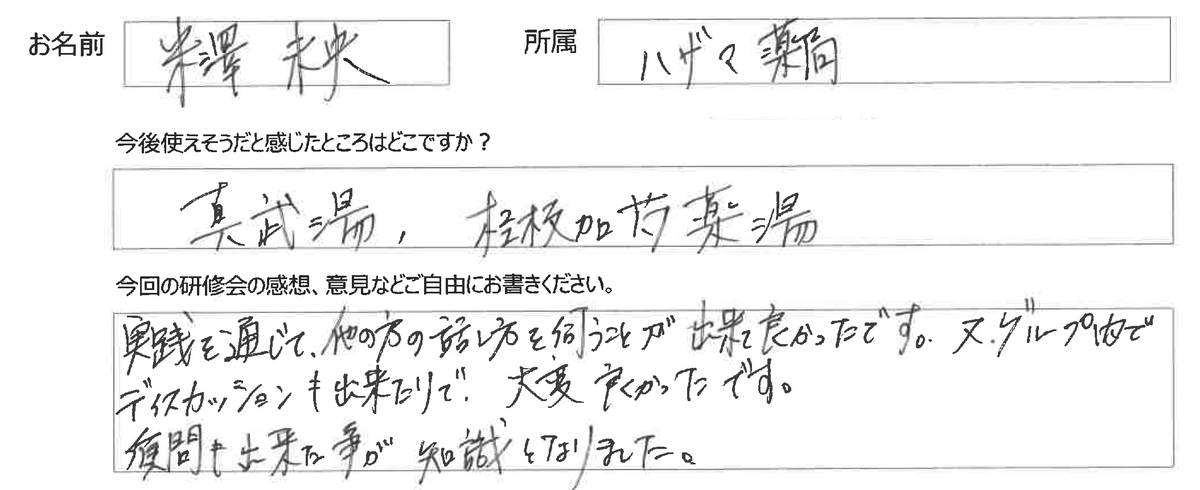 お名前 米澤 未央 所属 ハザマ薬局
今後使えそうだと感じたところはどこですか？
真武湯, 桂枝加芍薬湯
今回の研修会の感想、意見などご自由にお書きください。
実践を通じて、他の方の話し方を伺うことが出来て良かったです。又、グループ内で
ディスカッションも出来たりで、大変良くかったです。
質問も出来た事が知識となりました。